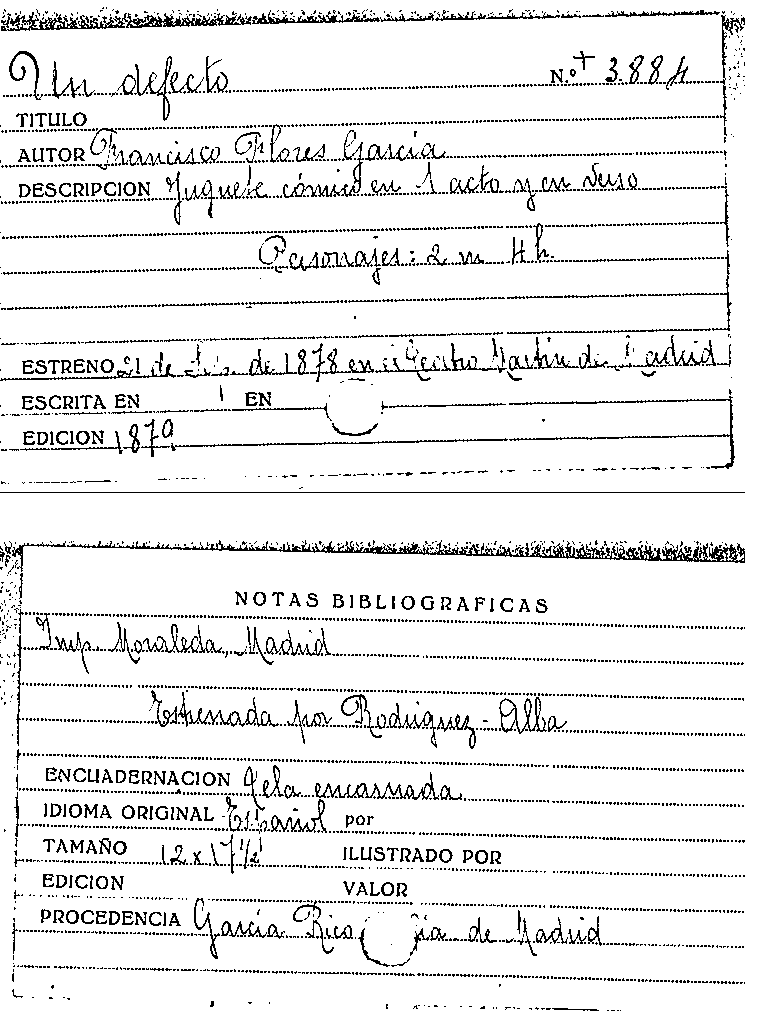 Un defecto
N.º + 3884
TITULO
AUTOR Francisco Flores García
DESCRIPCION Juguete cómico en 1 acto y en verso
Personajes: 2 m 4 h.
ESTRENO 21 de de 1878 en el Teatro Martín de Madrid
ESCRITA EN EN
EDICION 1879
NOTAS BIBLIOGRAFICAS
Imp. Moraleda, Madrid
Estrenada por Rodriguez-Alba
ENCUADERNACION Tela encarnada
IDIOMA ORIGINAL Español por
TAMAÑO 12 x 17 1/2 ILUSTRADO POR
EDICION VALOR
PROCEDENCIA García Rico de Madrid